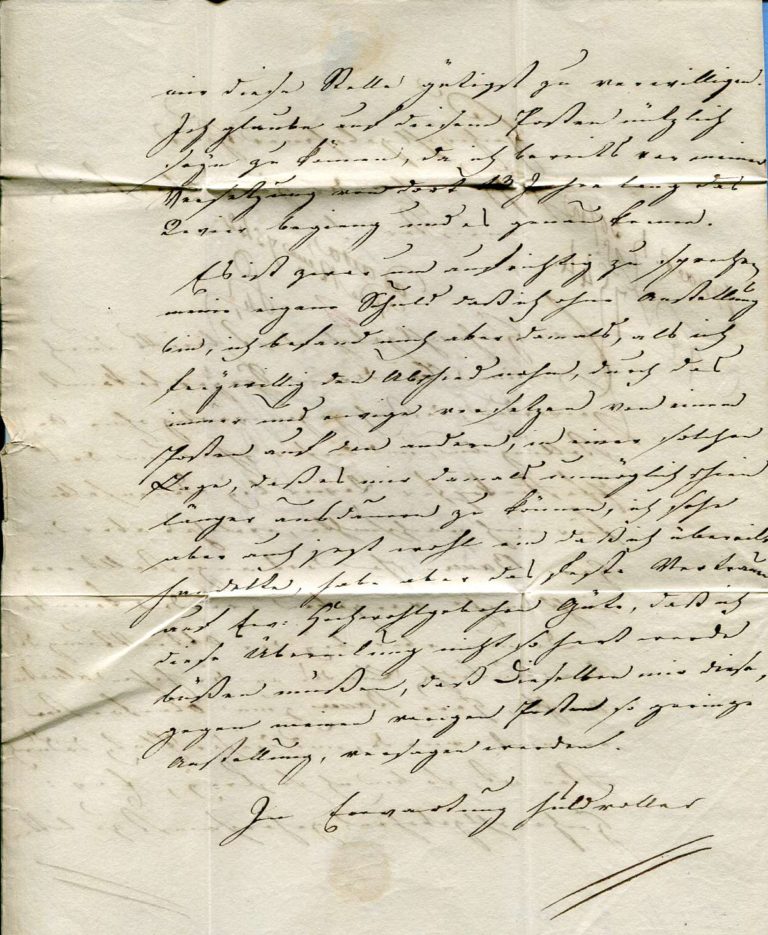 mir diese Stelle gütigst zu verwilligen.
Ich glaube auf diesem Posten nützlich
seyn zu können, da ich bereits vor meiner
Versetzung von dort 13 Jahre lang das
Revier begieng und es genau kenne.
Es ist zwar um aufrichtig zu sprechen
meine eigene Schuld daß ich ohne Anstellung
bin, ich befand mich aber damals, als ich
freywillig den Abschied nahm, durch das
immer und ewige versetzen von einem
Posten auf den andern, in einer solchen
Lage, daß es mir damals unmöglich schien
länger ausdauern zu können, ich sehe
aber auch jezt wohl ein daß ich übereilt
handelte, habe aber das feste Vertrauen
auf Ew: Hochwohlgebohren Güte, daß ich
diese Übereilung nicht so hart werde
büßen müßen, daß Dieselben mir diese,
gegen meinen vorigen Posten so geringe
Anstellung, versagen werden.
In Erwartung huldvoller